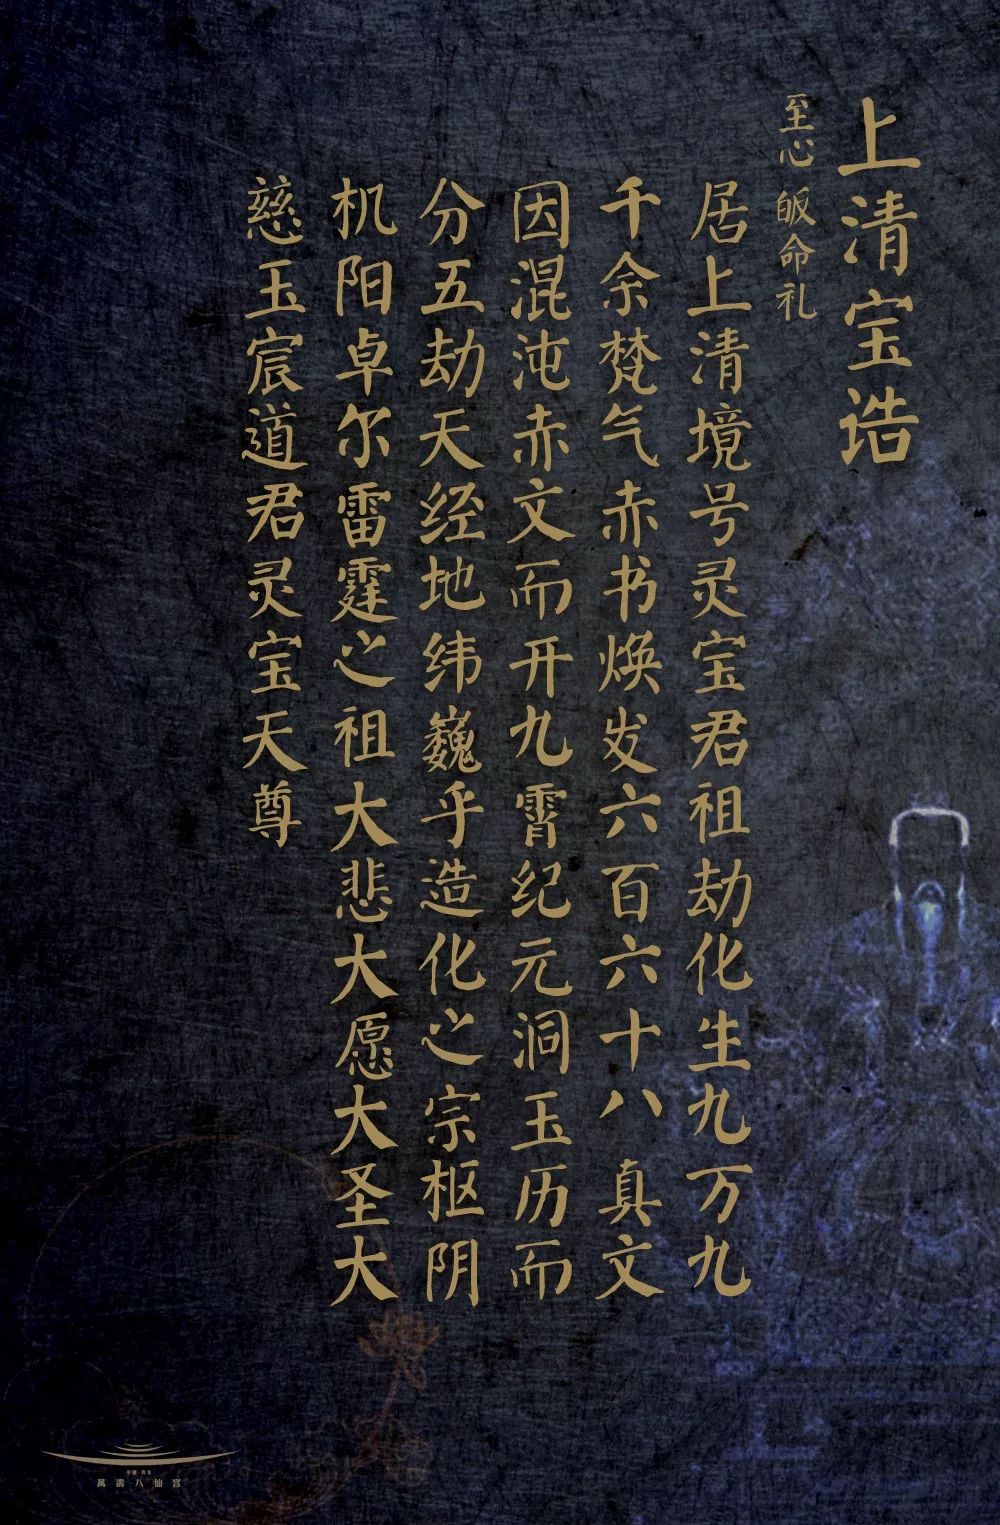 上清宝诰
至心皈命礼
居上清境号灵宝君祖劫化生九万九
千余梵气赤书焕发六百六十八真文
因混沌赤文而开九霄纪元洞玉历而
分五劫天经地纬巍乎造化之宗枢阴
机阳卓尔雷霆之祖大悲大愿大圣大
慈玉宸道君灵宝天尊
萬壽八仙宫